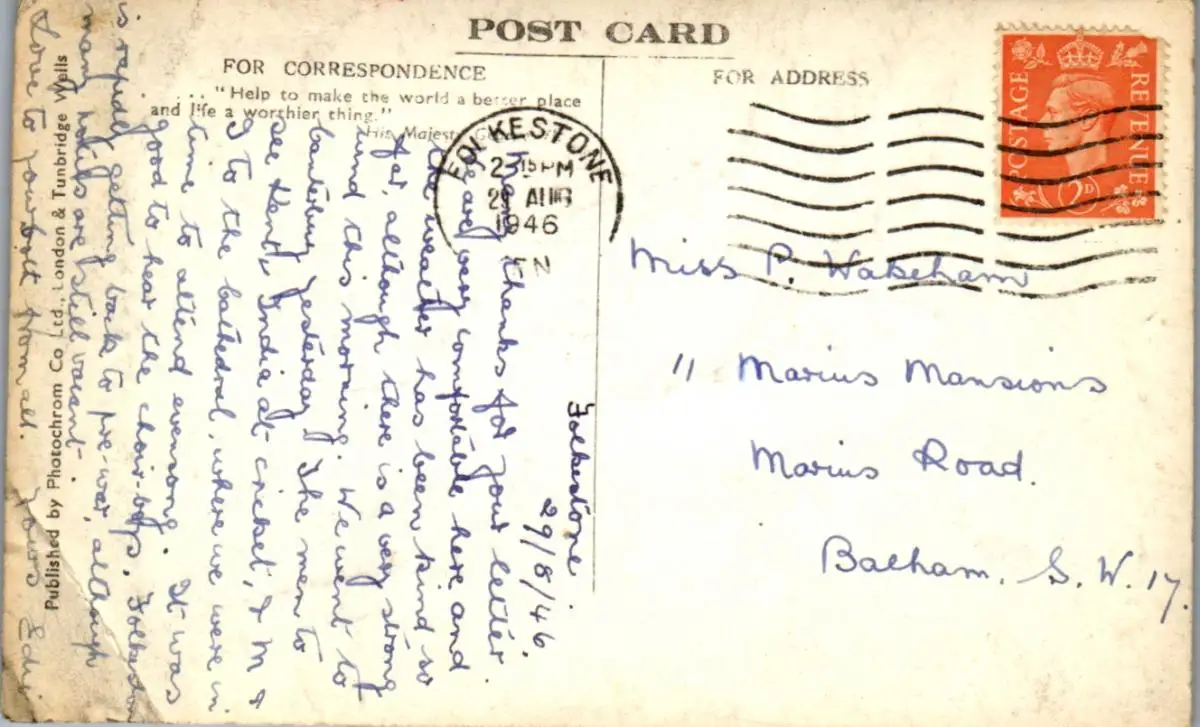 POST CARD
FOR CORRESPONDENCE
... "Help to make the world a better place
and life a worthier thing."
His Majesty
FOR ADDRESS
POSTAGE
REVENUE
2D
FOLKESTONE
2 15 PM
29 AUG
1946
Folkestone
29/8/46.
Many thanks for your letter
We are very comfortable here and
the weather has been kind so
far, although there is a very strong
wind this morning. We went to
Canterbury yesterday. The men to
see Kent v India at cricket, & M &
I to the Cathedral, where we were in
time to attend evensong. It was
good to hear the choir-boys. Folkestone
is rapidly getting back to pre-war, although
many hotels are still vacant.
Love to yourself from all. Yours
Miss P. Wakeham
11 Marius Mansions
Marius Road.
Balham. S.W. 17.
Published by Photochrom Co Ltd., London & Tunbridge Wells